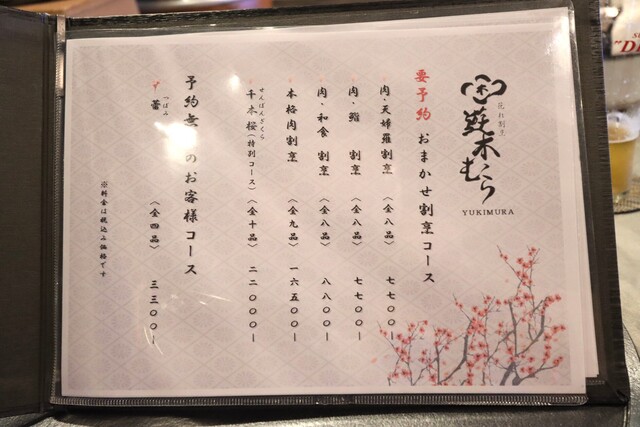 花れ割烹
蘇木むら
YUKIMURA
要予約 おまかせ割烹コース
肉・天婦羅割烹 〈全八品〉 七七〇〇ー
肉・鮨 割烹 〈全八品〉 七七〇〇ー
肉・和食 割烹 〈全八品〉 八八〇〇ー
本格肉割烹 〈全九品〉 一六五〇〇ー
せんぼんざくら
千本桜(特別コース) 〈全十品〉 二二〇〇〇ー
予約無 のお客様コース
つぼみ
蕾 〈全四品〉 三三〇〇ー
※料金は税込み価格です